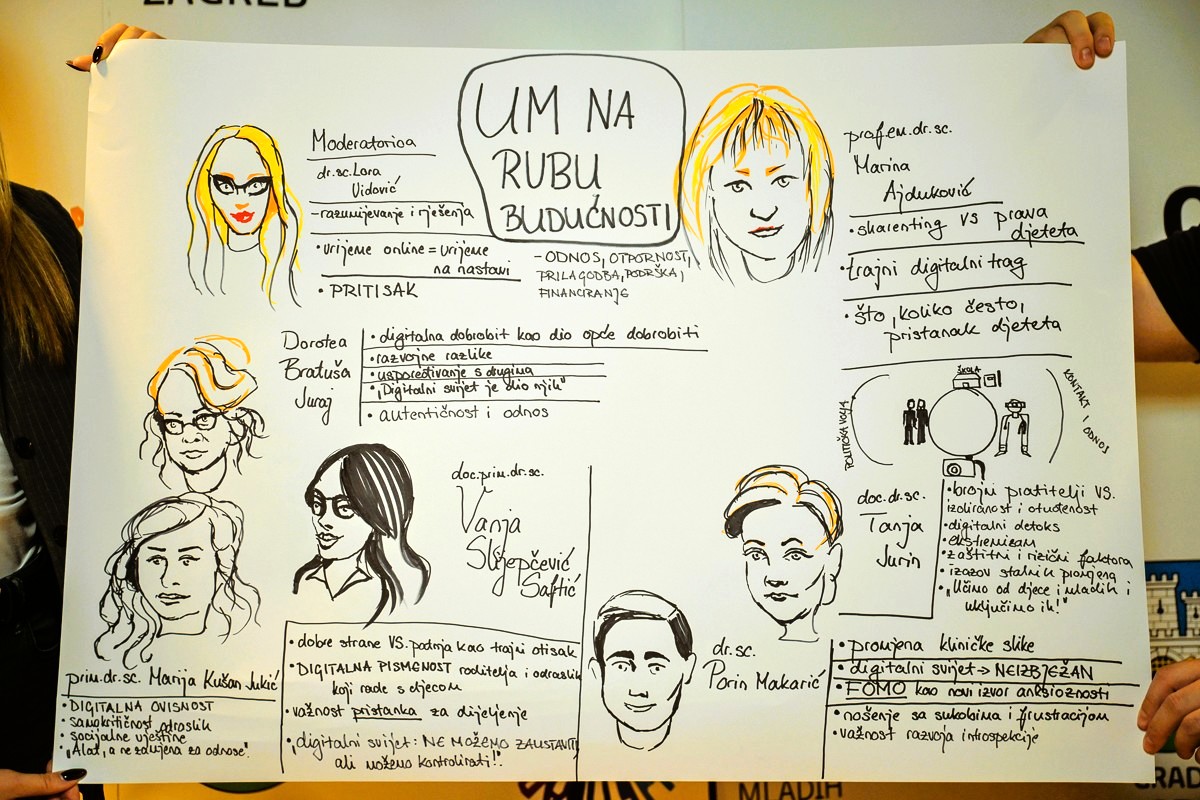 ZAGREB
UM NA
RUBU
BUDUĆNOSTI
- ODNOS, OTPORNOST,
PRILAGODBA, PODRŠKA,
FINANCIRANJE
Moderatorica
dr.sc. Lora
Vidović
- razumijevanje i rješenja
• vrijeme online = vrijeme
na nastavi
• PRITISAK
prof.em.dr.sc.
Marina
Ajduković
• sharenting vs prava
djeteta
• trajni digitalni trag
• što, koliko često,
pristanak djeteta
ŠKOLA
POLITIČKA VOLJA
KONTAKT I ODNOS
Dorotea
Bratuša
Juraj
• digitalna dobrobit kao dio opće dobrobiti
• razvojne razlike
• uspoređivanje s drugima
• "Digitalni svijet je dio njih"
• autentičnost i odnos
prim.dr.sc. Marija Kušan Jukić
• DIGITALNA OVISNOST
• samokritičnost odraslih
• socijalne vještine
• "Alat, a ne zamjena za odnose".
doc.prim.dr.sc.
Vanja
Slijepčević
Saftić
• dobre strane VS. padnja kao trajni otisak
• DIGITALNA PISMENOST roditelja i odraslih
koji rade s djecom
• važnost pristanka za dijeljenje
• "digitalni svijet: NE MOŽEMO ZAUSTAVITI,
ali možemo kontrolirati!".
doc.dr.sc.
Tanja
Jurin
• brojni pratitelji VS.
izoliranost i otuđenost
• digitalni detoks
• ekstremizam
• zaštitni i rizični faktora
• izazov stalnih promjena
• "Učimo od djece i mladih i
uključimo ih!"
dr.sc.
Porin Makarić
• promjena kliničke slike
• digitalni svijet → NEIZBJEŽAN
• FOMO kao novi izvor anksioznosti
• nošenje sa sukobima i frustracijom
• važnost razvoja introspekcije
MLADIH
GRAD